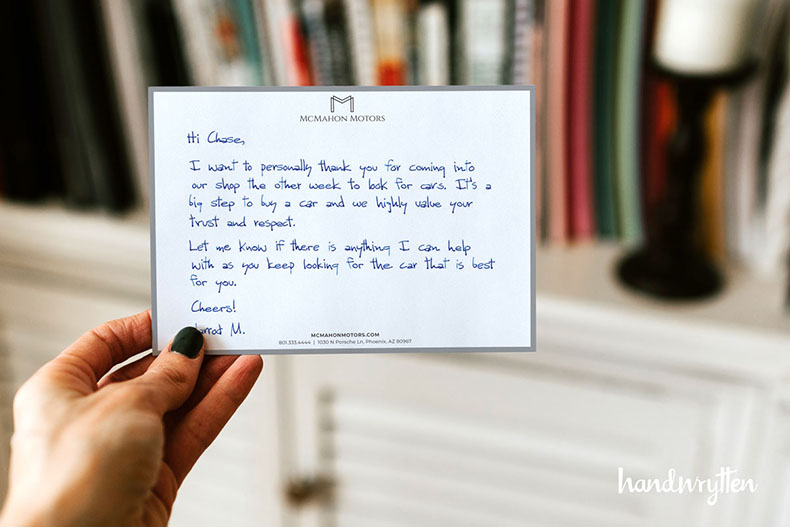 MCMAHON MOTORS
Hi Chase,
I want to personally thank you for coming into
our shop the other week to look for cars. It's a
big step to buy a car and we highly value your
trust and respect.
Let me know if there is anything I can help
with as you keep looking for the car that is best
for you.
Cheers!
M.
MCMAHONMOTORS.COM
801.333.4444 | 1030 N Porsche Ln, Phoenix, AZ 80967
handwrytten